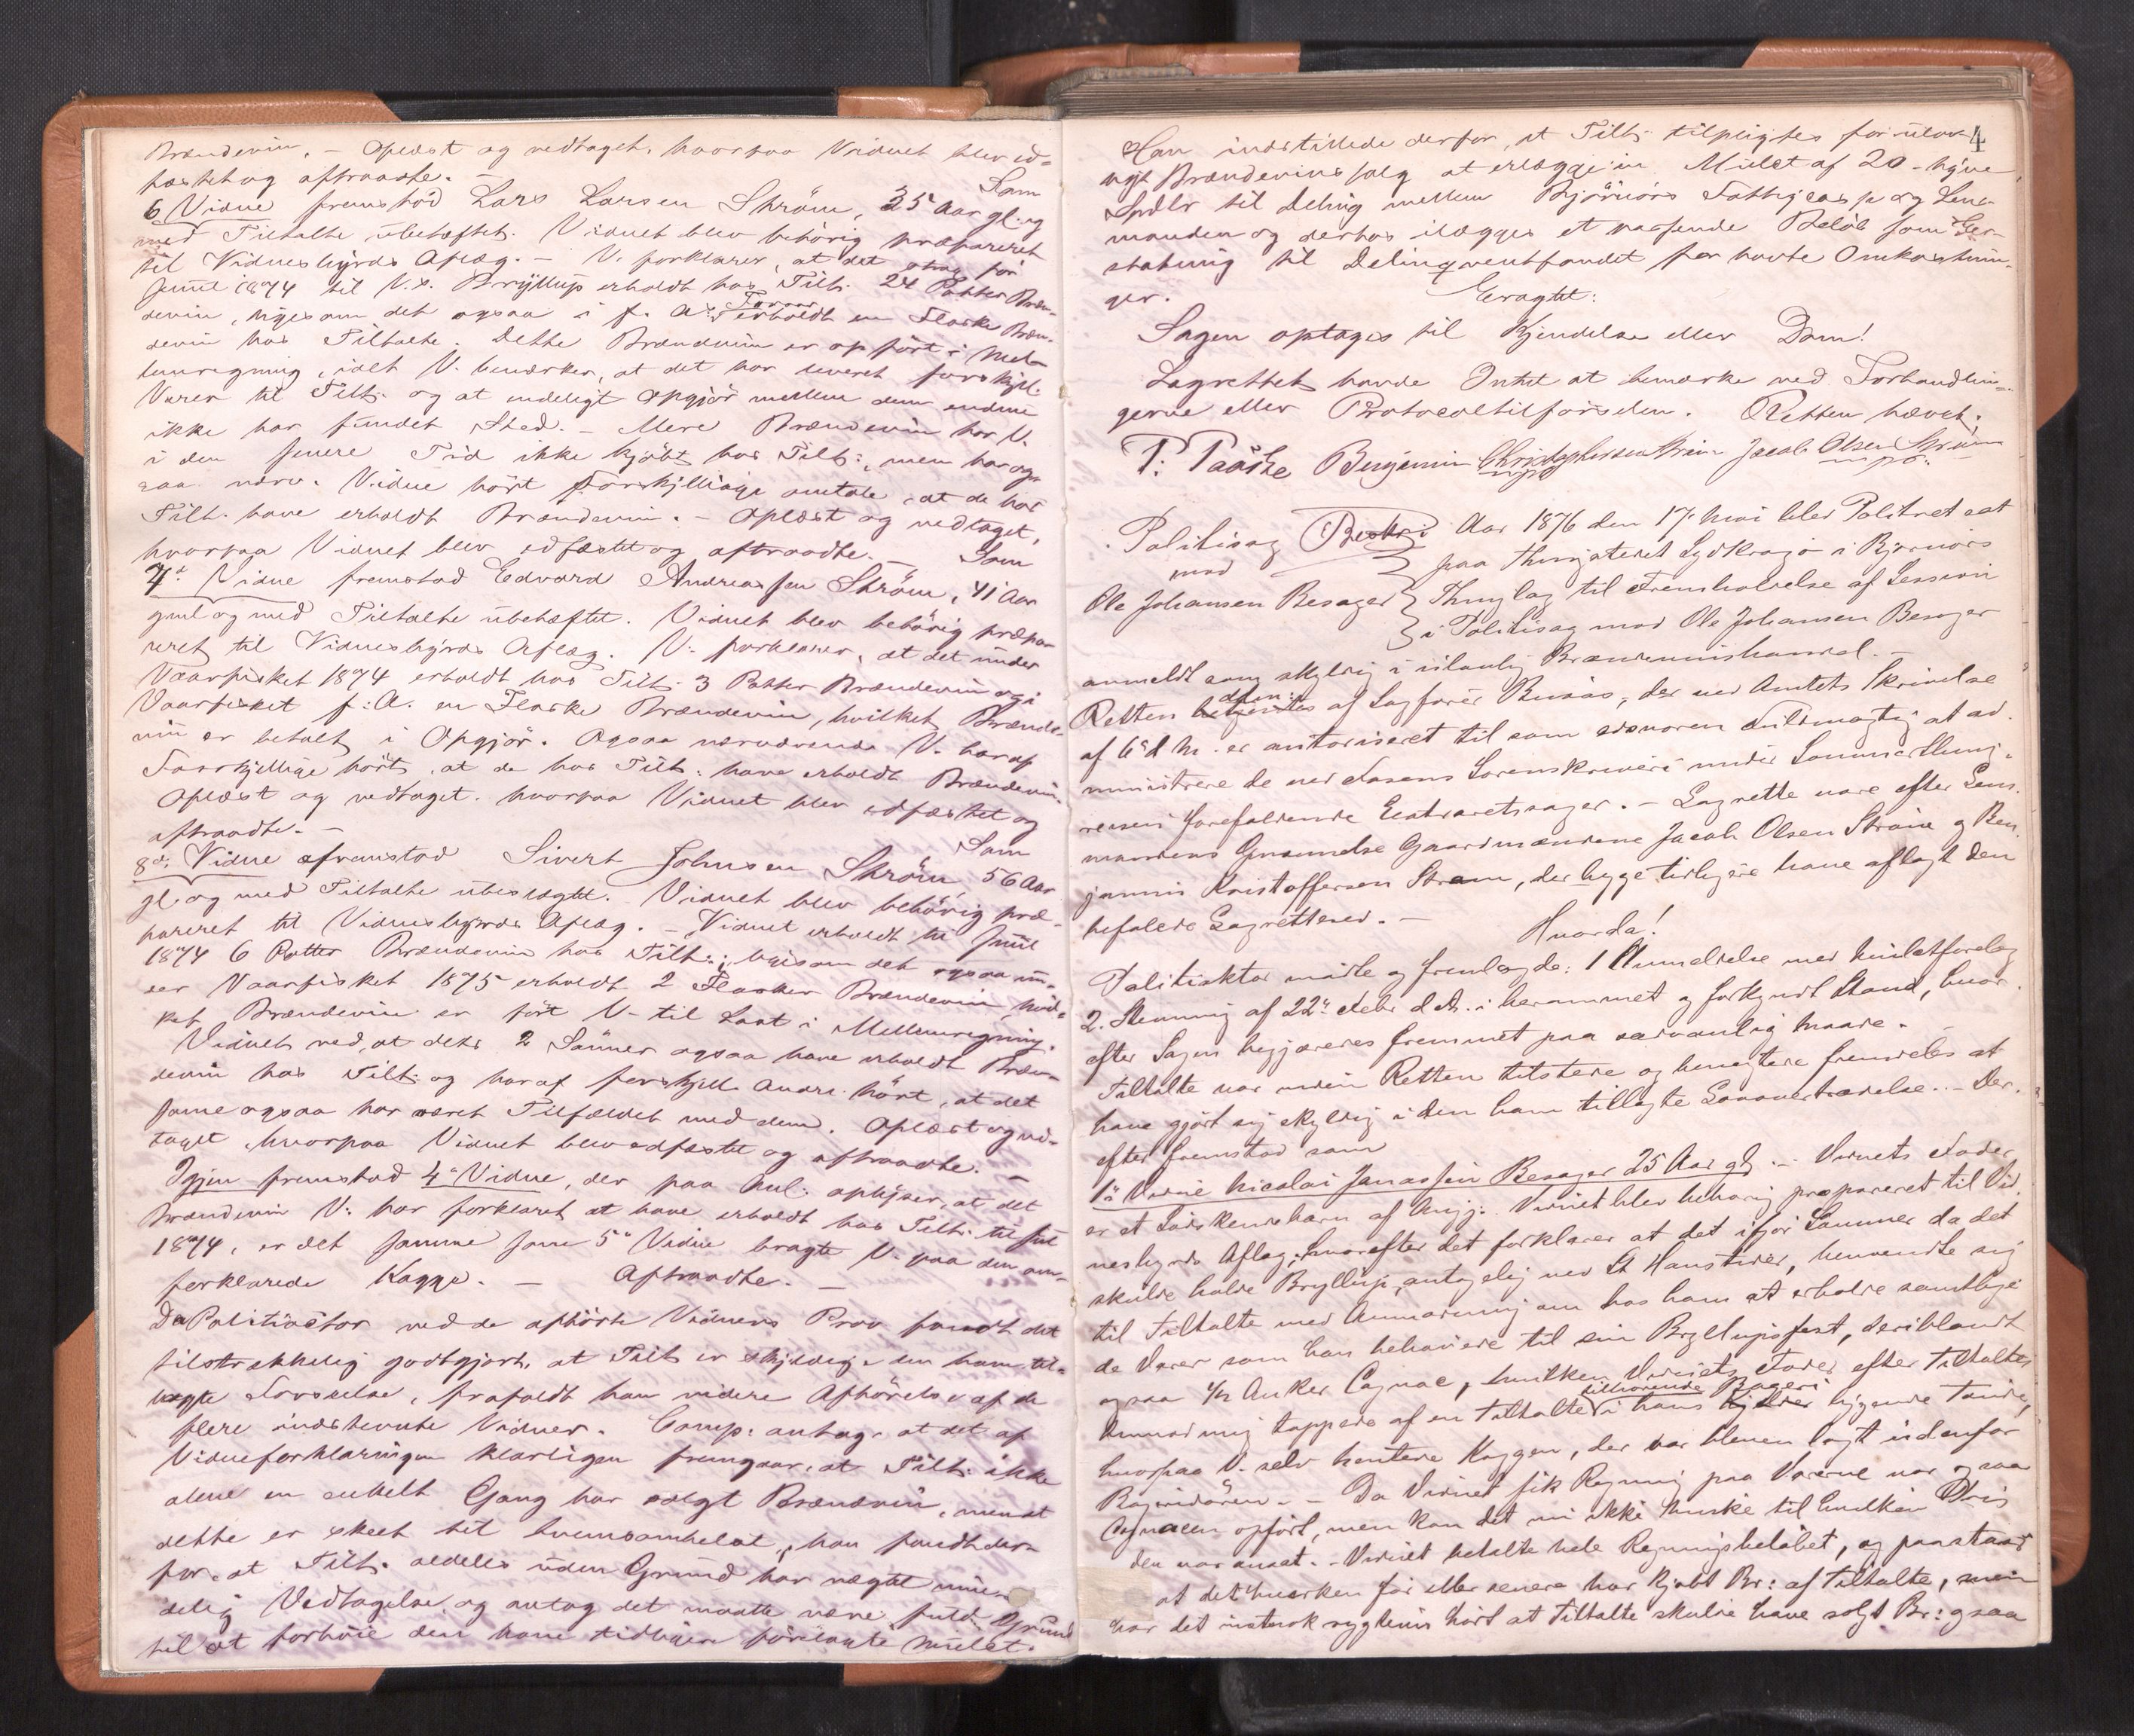 Brændevin. – Oplæst og vedtaget, hvorpaa Vidnet blev ed-
fæstet og aftraadte. – Som
6 Vidne fremstod Lars Larsen Strøm, 35 Aar gl. og
med Tiltalte ubehæftet. Vidnet blev behørig præpareret
til Vidnesbyrds Aflæg. – V. forklarer, at det strax før
Juul 1874 til V.s. Bryllup erholdt hos Tilt. 24 Potter Bræn-
devin, ligesom det ogsaa i f. A.s Foraar erholdt en Flaske Bræn-
devin hos Tiltalte. Dette Brændevin er opført i Mel-
lemregning, idet V. bemærker, at det har leveret forskjell.
Varer til Tilt. og at endeligt Opgjør mellem dem endnu
ikke har fundet Sted. – Mere Brændevin har V.
i den senere Tid ikke kjøbt hos Tilt:, men har og-
saa nærv. Vidne hørt Forskjellige omtale, at de hos
Tilt. have erholdt Brændevin. – Oplæst og vedtaget,
hvorpaa Vidnet blev edfæstet og aftraadte. – Som
7d Vidne fremstod Edvard Andreassen Strøm, 41 Aar
gml og med Tiltalte ubehæftet. Vidnet blev behørig præpa-
reret til Vidnesbyrds Aflæg. V. forklarer, at det under
Vaarfisket 1874 erholdt hos Tilt. 3 Potter Brændevin og i
Vaarfisket f: A. en Flaske Brændevin, hvilket Brænde-
vin er betalt i Opgjør. Ogsaa nærværende V. har af
Forskjellige hørt, at de hos Tilt: have erholdt Brændevin.
Oplæst og vedtaget. hvorpaa Vidnet blev edfæstet og
aftraadte. – Som
8de Vidne fremstod Sivert Johnsen Strøm, 56 Aar
gl. og med Tiltalte ubeslægtet. Vidnet blev behørig præ-
pareret til Vidnesbyrds Aflæg. – Vidnet erholdt til Juul
1874 6 Potter Brændevin hos Tilt:; ligesom det ogsaa un-
der Vaarfisket 1875 erholdt 2 Flasker Brændevin, hvil-
ket Brændevin er ført V. til Last i Mellemregning.
Vidnet ved, at dets 2 Sønner ogsaa have erholdt Bræn-
devin hos Tilt. og har af forskjell. Andre hørt, at det
samme ogsaa har været Tilfældet med dem. Oplæst og ved-
taget, hvorpaa Vidnet blev edfæstet og aftraadte. –
Igjen fremstod 4de Vidne, der paa Anl. oplyser, at det
Brændevin V: har forklaret at have erholdt hos Tilt. til Juul
1874, er det samme som 5te Vidne bragte V. paa den om-
forklarede Kagge. – Aftraadte. –
Da Politiactor ved de afhørte Vidners Prov fandt det
tilstrækkelig godtgjort, at Tilt. er skyldig i den ham til-
lagte Forseelse, frafaldt han videre Afhørelse af de
flere indstevnte Vidner. Comp. antog, at det af
Vidneforklaringen klarligen fremgaar, at Tilt. ikke
alene en enkelt Gang har solgt Brændevin, men at
dette er skeet tit hvemsomhelst, han fandt der-
for, at Tilt. aldeles uden Grund har nægtet min-
delig Vedtagelse, og antog det maatte være fuld Grund
til at forhøie den ham tidligere forelagte Mulct.
4
Han indstillede derfor, at Tilt. tilpligtes for ulov-
ligt Brændevinssalg at erlægge en Mulct af 20 – tyve
Spdlr til Deling mellem Bjørnørs Fattigcasse og Lens-
manden og derhos ilægges et passende Beløb som Er-
statning til Delinqventfondet for havte Omkostnin-
ger. Eragtet:
Sagen optages til Kjendelse eller Dom!
Lagrettet havde Intet at bemærke ved Forhandlin-
gerne eller Protocoltilførselen. Retten hævet.
P. Paaske Benjamin Christophersen Strøm Jacob Olsen Strøm
m p P. m p P.
Politisag
mod
Ole Johansen Besager
Aar 1876 den 17 Mai blev Politiret sat
paa Thingstedet Sydkrogø i Bjørnørs
Thinglag til Fremholdelse af Session
i Politisag mod Ole Johansen Besager
anmeldt som skyldig i ulovlig Brændevinshandel. –
Retten adm: af Sagfører Busås, der ved Amtets Skrivelse
af 6te d. M. er autoriseret til som edsvoren Fuldmægtig at ad-
ministrere de ved Fosens Sorenskriveri under Sommerthing-
reisen forefaldende Extraretssager. – Lagrette vare efter Lens-
mandens Opnævnelse Gaardmændene Jacob Olsen Strøm og Ben-
jamin Kristoffersen Strøm, der begge tidligere have aflagt den
befalede Lagretteed. –
Hvorda!
Politiaktor mødte og fremlagde: 1 Anmeldelse med Mulctforelæg
2. Stevning af 22de Febr d. A. i berammet og forkyndt Stand, hvor-
efter Sagen begjæredes fremmet paa sædvanlig Maade. –
Tiltalte var inden Retten tilstede og benegtede fremdeles at
have gjort sig skyldig i den ham tillagte Lovovertrædelse. – Der-
efter fremstod som
1te Vidne Nicolai Jonassen Besager 25 Aar gl. – Vidnets Fader
er et Sødskendebarn af Ang:. Vidnet blev behørig præpareret til Vid-
nesbyrds Aflæg, hvorefter det forklarer at det ifjor Sommer da det
skulde holde Bryllup, antagelig ved St Hanstider, henvendte sig
til Tiltalte med Anmodning om hos ham at erholde samtlige
de Varer som han behøvede til sin Bryllupsfest, deriblandt
ogsaa 1/2 Anker Cognac, hvilken Vidnets Fader efter Tiltaltes
Anmodning tappede af en Tiltalte tilhørende i hans Bageri liggende Tønde,
hvorpaa V. selv hentede Kaggen, der var bleven lagt udenfor
Bageridøren. – Da Vidnet fik Regning paa Varerne var ogsaa
Cognacen opført, men kan det nu ikke huske til hvilken Pris
den var ansat. – Vidnet betalte hele Regningsbeløbet, og paastaar
at det hverken før eller senere har kjøbt Br: af Tiltalte, men
har det rygteviis hørt at Tiltalte skulde have solgt Br: ogsaa